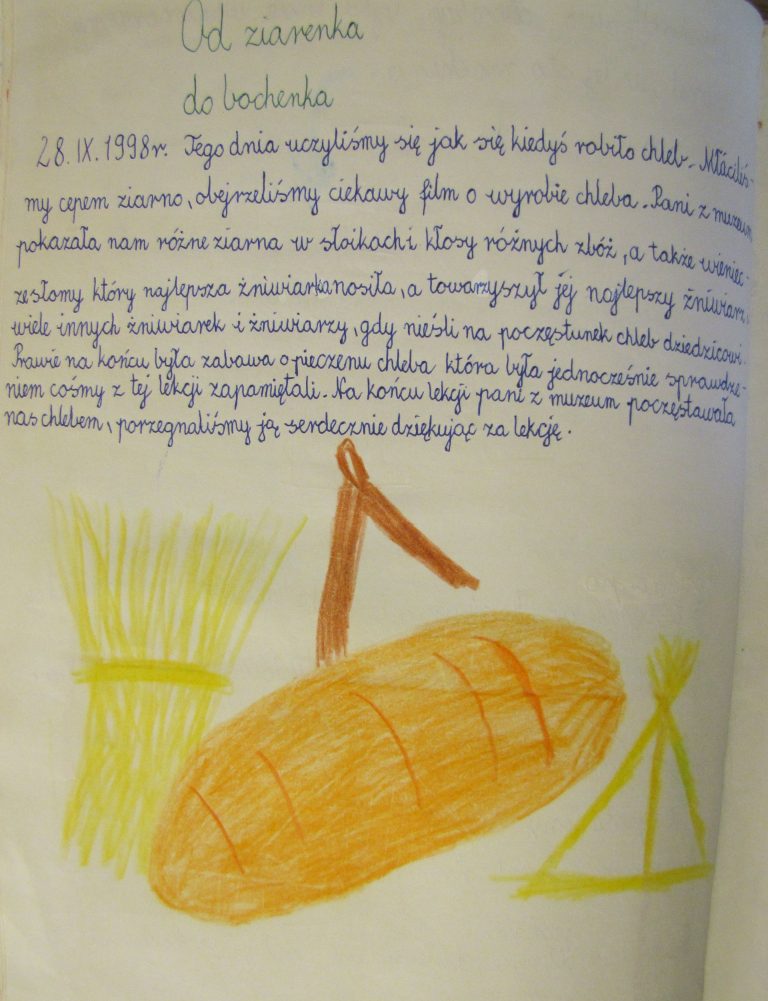 Od ziarenka
do bochenka
28.IX.1998r. Tego dnia uczyliśmy się jak się kiedyś robiło chleb. Młóciliś-
my cepem ziarno, obejrzeliśmy ciekawy film o wyrobie chleba. Pani z muzeum
pokazała nam różne ziarna w słoikach i kłosy różnych zbóż, a także wieniec
ze słomy który najlepsza żniwiarka nosiła, a towarzyszył jéj najlepszy żniwiarz,
wiele innych żniwiarek i żniwiarzy, gdy nieśli na poczęstunek chleb dziedzicowi.
Prawie na końcu była zabawa o pieczenu chleba która była jednocześnie sprawdze-
niem cośmy z tej lekcji zapamiętali. Na końcu lekcji pani z muzeum poczęstawała
nas chlebem, porzegnaliśmy ją serdecznie dziękując za lekcję.